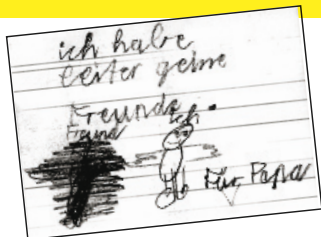 ich habe
leiter geine
Freunde.
Freund
Ich
Für Papa